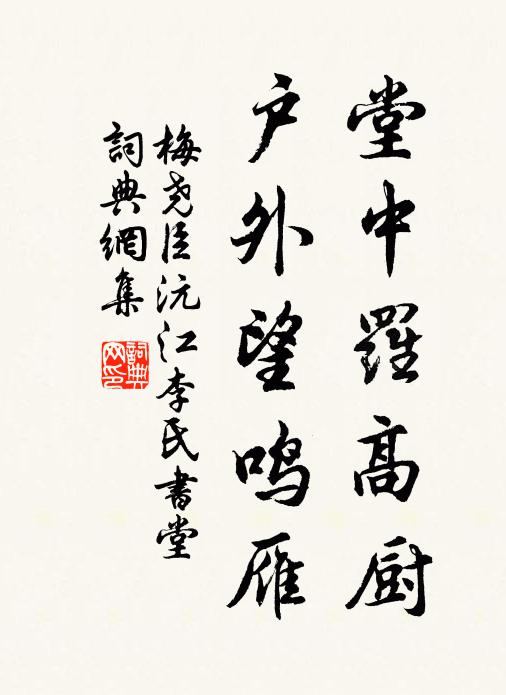 堂中羅高厨
户外望鸣雁
梅尧臣沅江李氏書堂
詞典網集
詞典网印